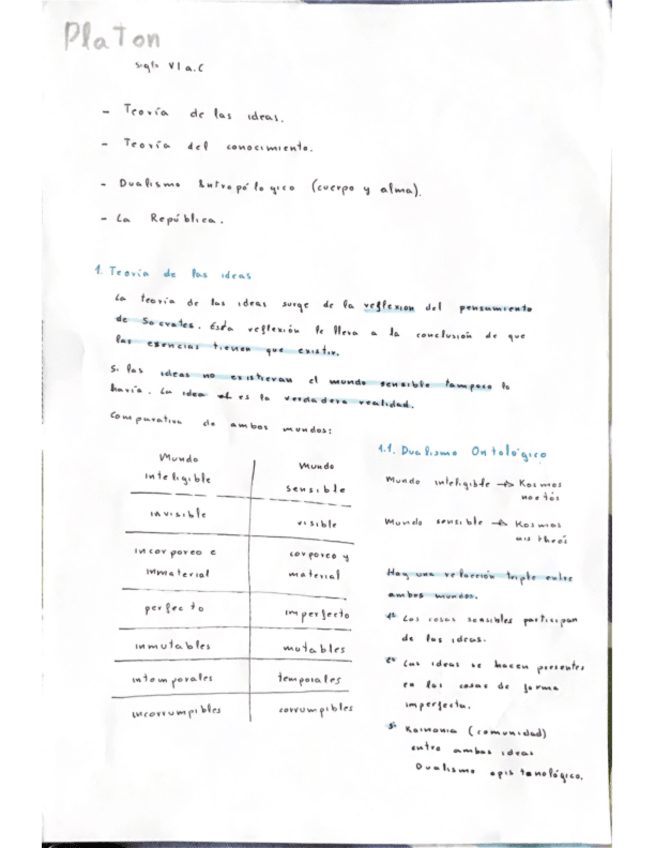 Platon
siglo VI a.C
- Teoría de las ideas.
- Teoría del conocimiento.
- Dualismo Antropólogico (cuerpo y alma).
- La República.
1. Teoría de las ideas
La teoría de las ideas surge de la reflexion del pensamiento
de Socrates. Esta reflexión le lleva a la conclusión de que
las esencias tienen que existir.
Si las ideas no existieran el mundo sensible tampoco lo
haría. La idea es la verdadera realidad.
Comparativa de ambos mundos:
Mundo inteligible | Mundo sensible
invisible | visible
incorporeo e inmaterial | corporeo y material
perfecto | imperfecto
inmutables | mutables
intemporales | temporales
incorrumpibles | corrumpibles
1.1. Dualismo Ontológico
Mundo inteligible → Kosmos
noetós
Mundo sensible → Kosmos
Hay una relacción triple entre
ambos mundos.
1º Las cosas sensibles participan
de las ideas.
2º Las ideas se hacen presentes
en las cosas de forma
imperfecta.
3º Koinonia (comunidad)
entre ambas ideas
Dualismo epistanológico.